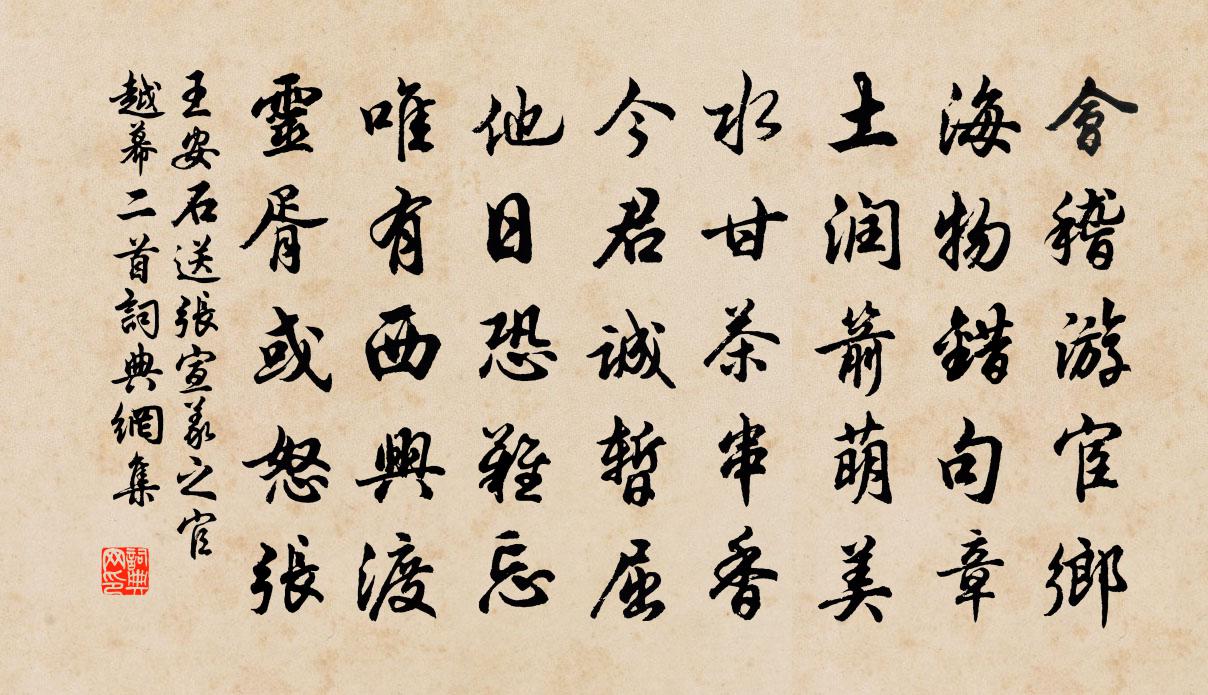 會稽游宦鄉
海物錯句章
土潤箭萌美
水甘茶串香
今君誠暫屈
他日恐難忘
唯有西興渡
靈胥或怒張
王安石送張宣義之官
越幕二首詞典網集
詞典网印